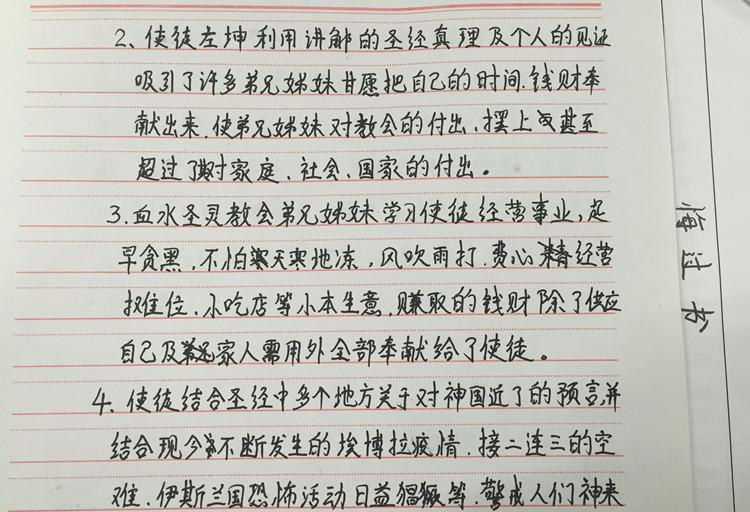 2、使徒左坤利用讲解的圣经真理及个人的见证
吸引了许多弟兄姊妹甘愿把自己的时间.钱财奉
献出来.使弟兄姊妹对教会的付出、摆上甚至
超过了对家庭、社会、国家的付出。
3.血水圣灵教会弟兄姊妹学习使徒经营事业,起
早贪黑,不怕寒天寒地冻,风吹雨打.费心经营
摊位、小吃店等小本生意.赚取的钱财除了供应
自己及家人需用外全部奉献给了使徒。
4、使徒结合圣经中多个地方关于对神国近了的预言,并
结合现今不断发生的埃博拉疫情.接二连三的空
难.伊斯兰国恐怖活动日益猖獗等.警戒人们神来
悔过书